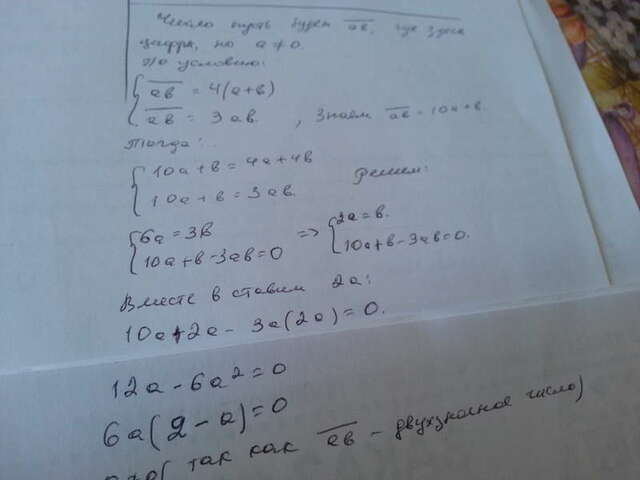 Число пусть будет ab, где здесь
цифры, но a ≠ 0.
По условию:
{ ab = 4(a+b)
{ ab = 3ab. , Знаем ab = 10a+b.
Тогда:
{ 10a+b = 4a+4b
{ 10a+b = 3ab. Решем:
{ 6a = 3b
{ 10a+b-3ab=0 => { 2a = b.
{ 10a+b-3ab=0.
Вместе в ставим 2a:
10a+2a - 3a(2a) = 0.
12a - 6a² = 0
6a(2-a) = 0
так как ab - двухзначное число)